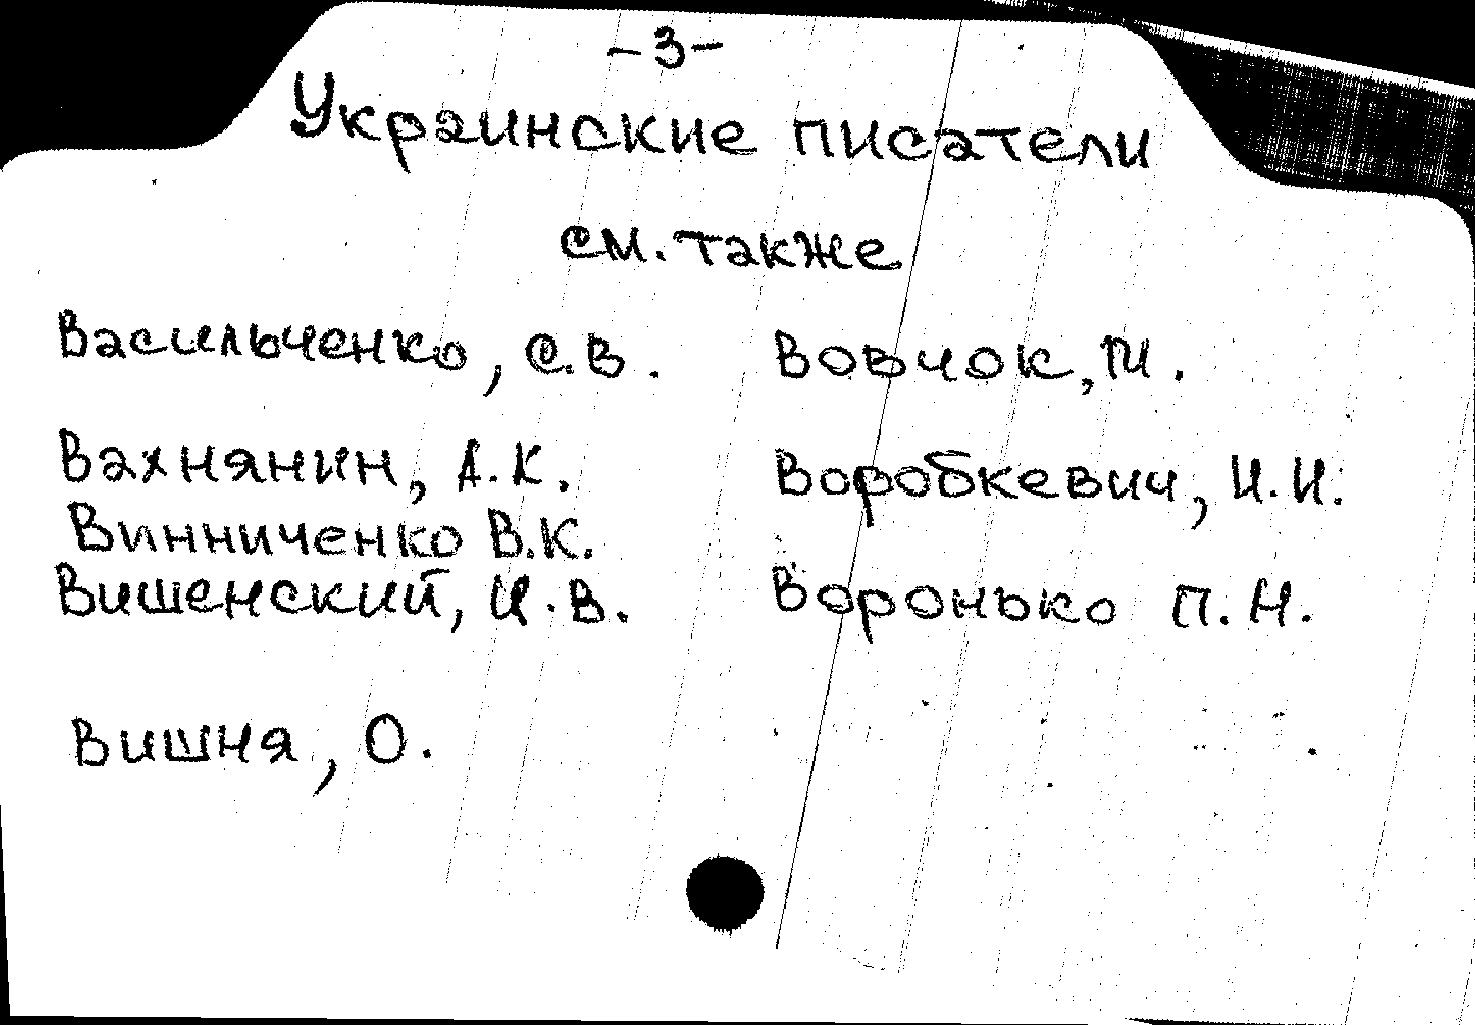 -3-
Украинские писатели
см. также
Васильченко, С.В.
Вахнянин, А.К.
Винниченко В.К.
Вишенский, И.В.
Вишня, О.
Вовчок, М.
Воробкевич, И.И.
Воронько П.Н.